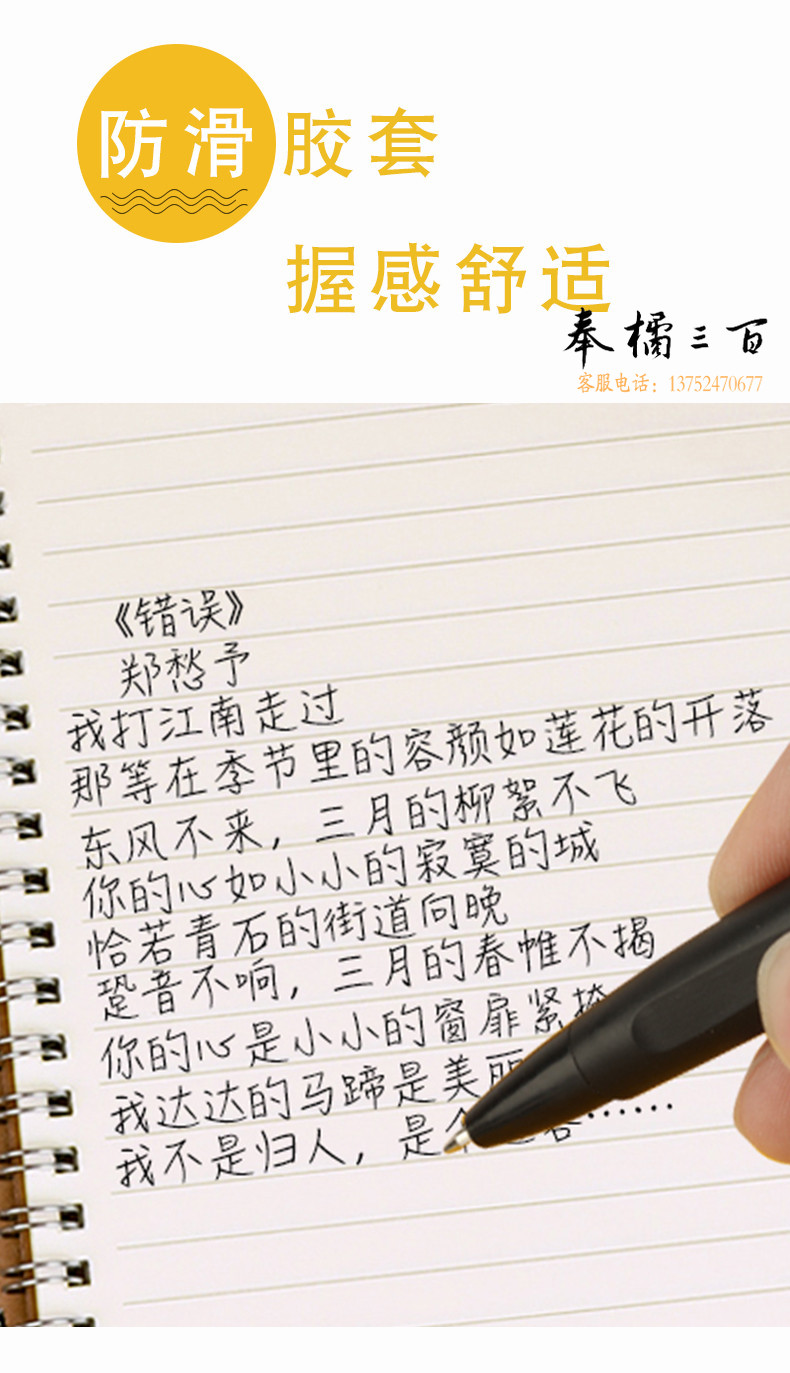 防滑胶套
握感舒适
奉橘三百
客服电话：13752470677
《错误》
郑愁予
我打江南走过
那等在季节里的容颜如莲花的开落
东风不来，三月的柳絮不飞
你的心如小小的寂寞的城
恰若青石的街道向晚
跫音不响，三月的春帷不揭
你的心是小小的窗扉紧掩
我达达的马蹄是美丽
我不是归人，是个……